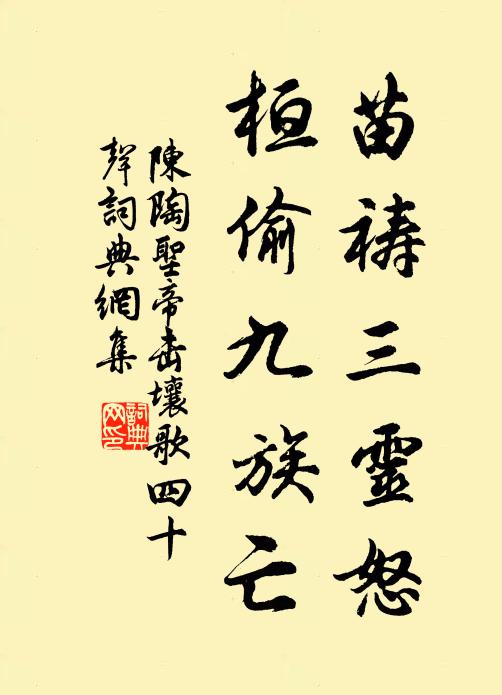 苗祷三靈怒
桓偷九族亡
陳陶聖帝击壤歌四十
聲詞典網集
詞典网印